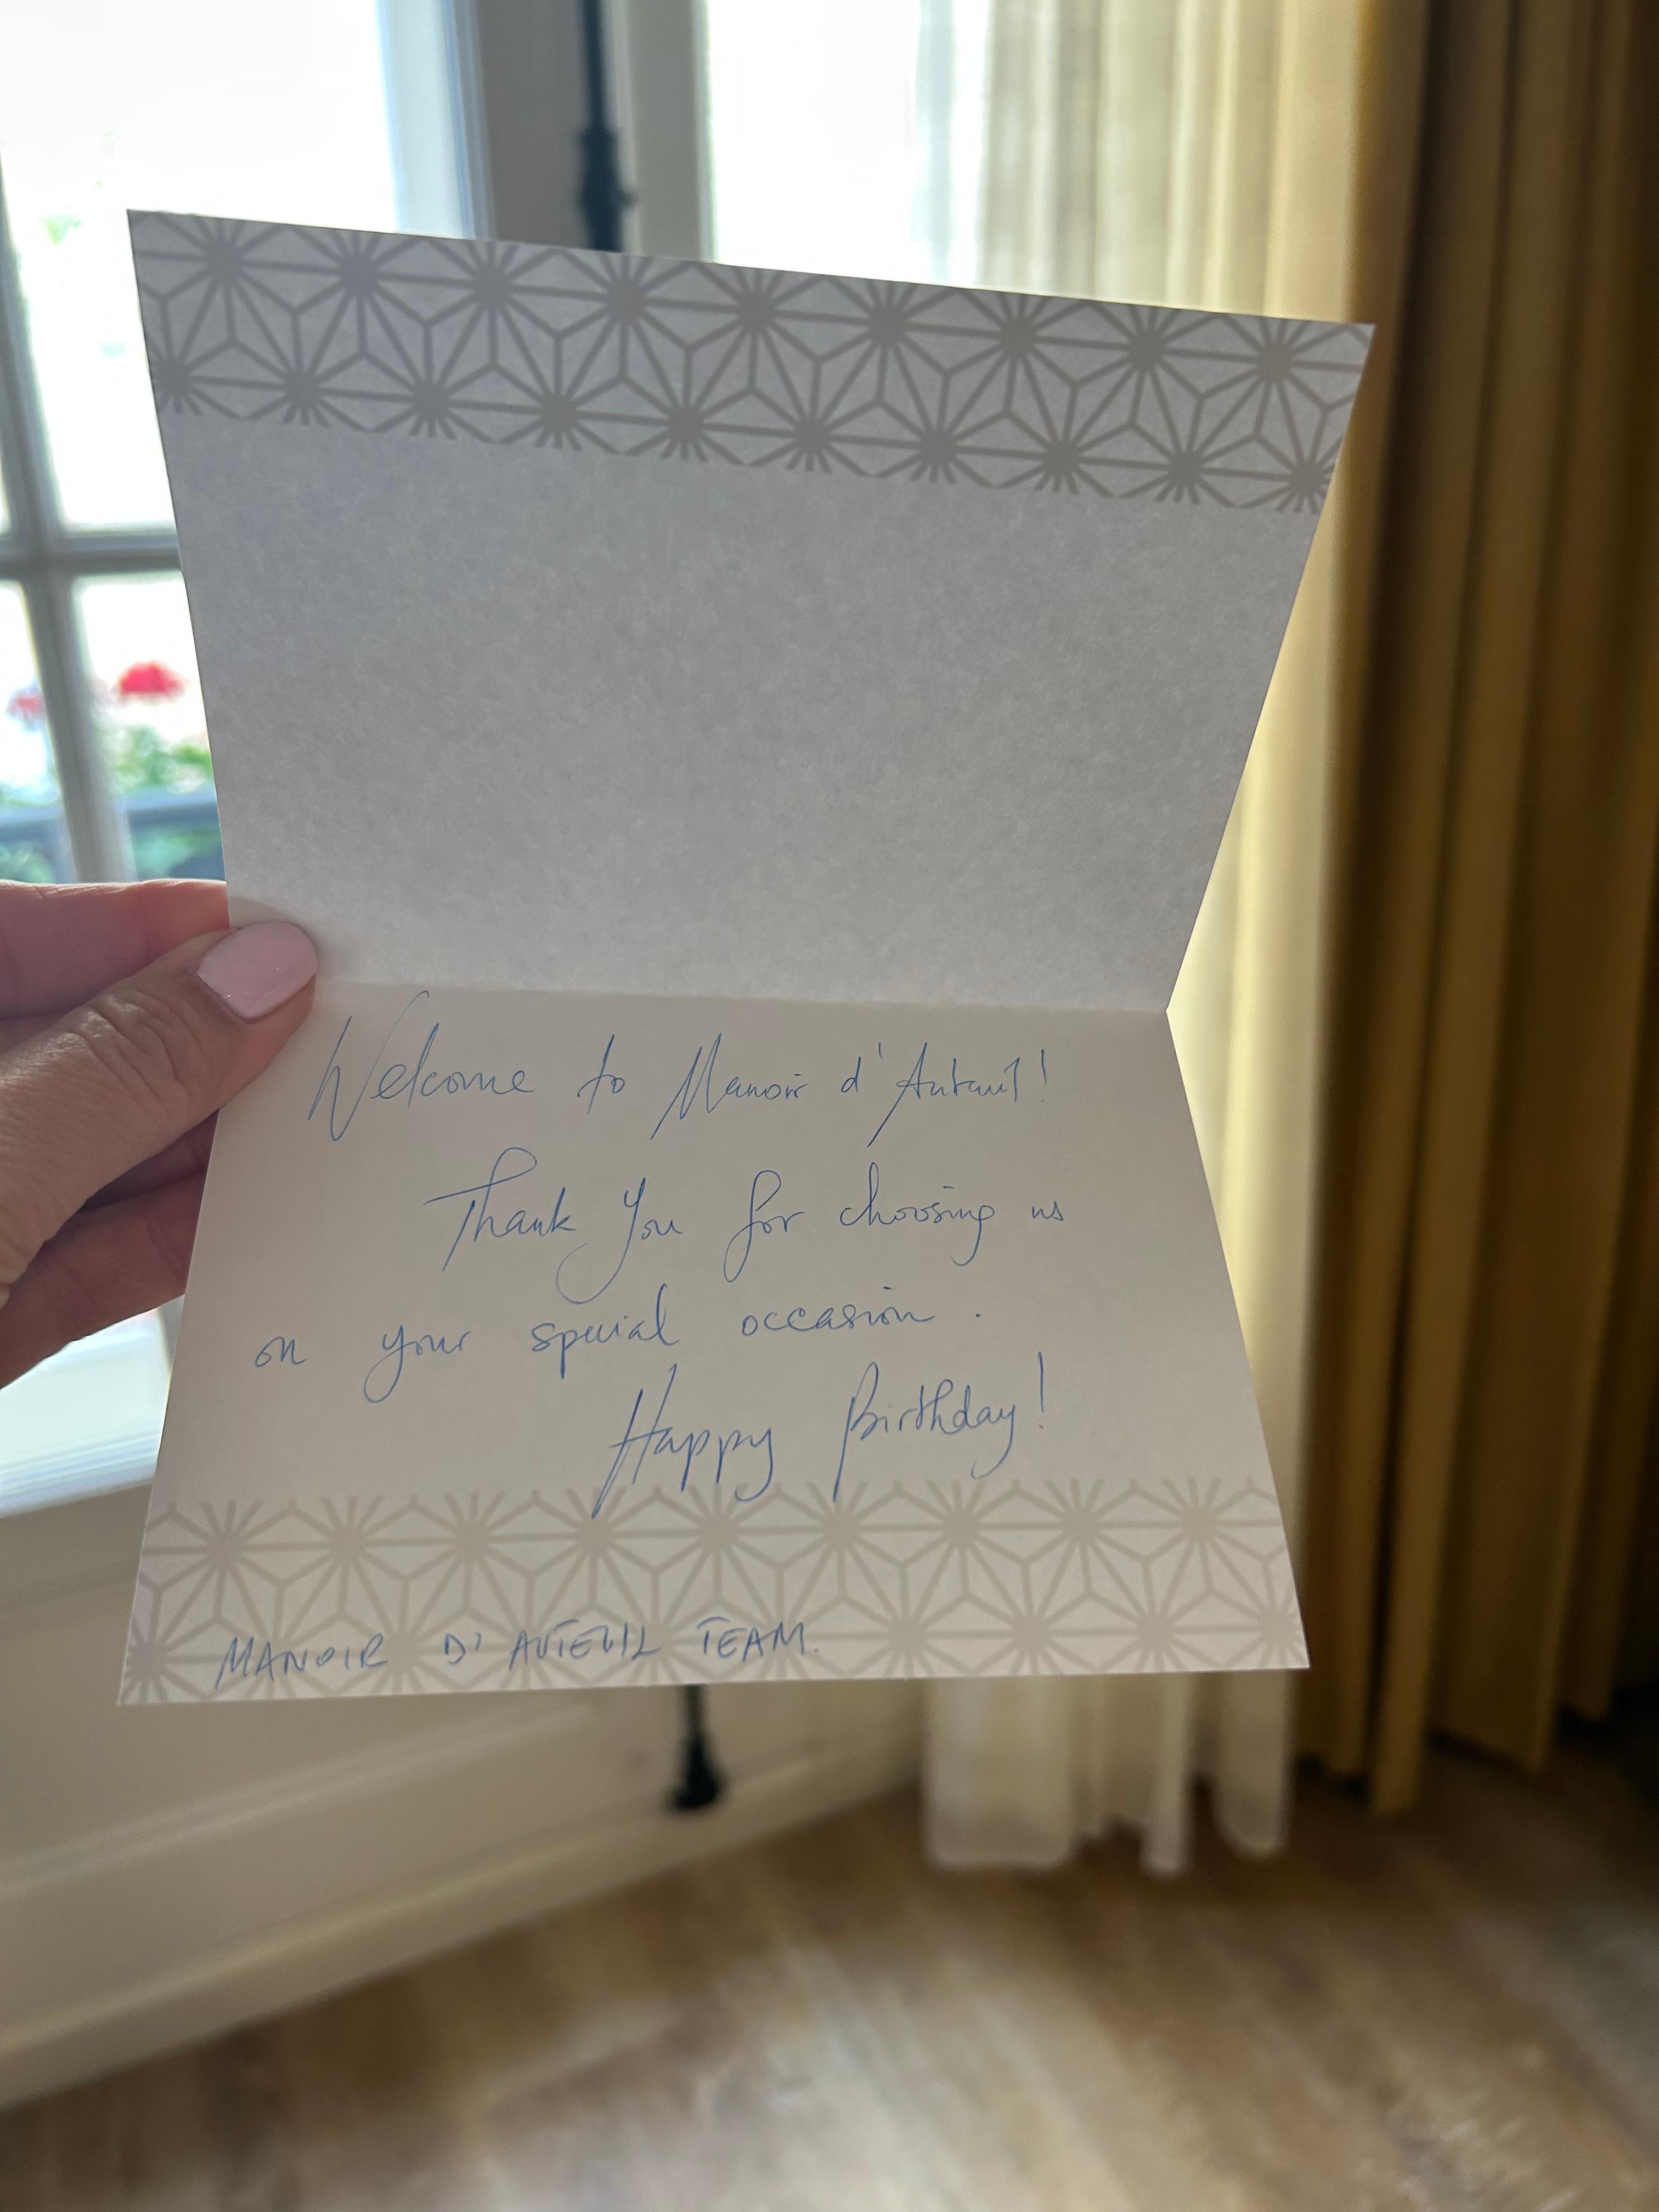 Welcome to Manoir d'Auteuil!
Thank You for choosing us
on your special occasion.
Happy Birthday!
MANOIR D'AUTEUIL TEAM.